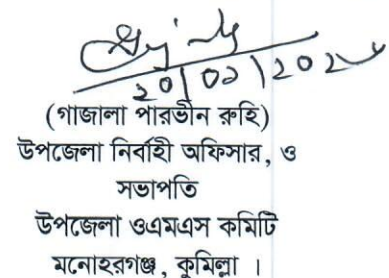 (গাজালা পারভীন রুহি)
উপজেলা নির্বাহী অফিসার, ও
সভাপতি
উপজেলা ওএমএস কমিটি
মনোহরগঞ্জ, কুমিল্লা ।